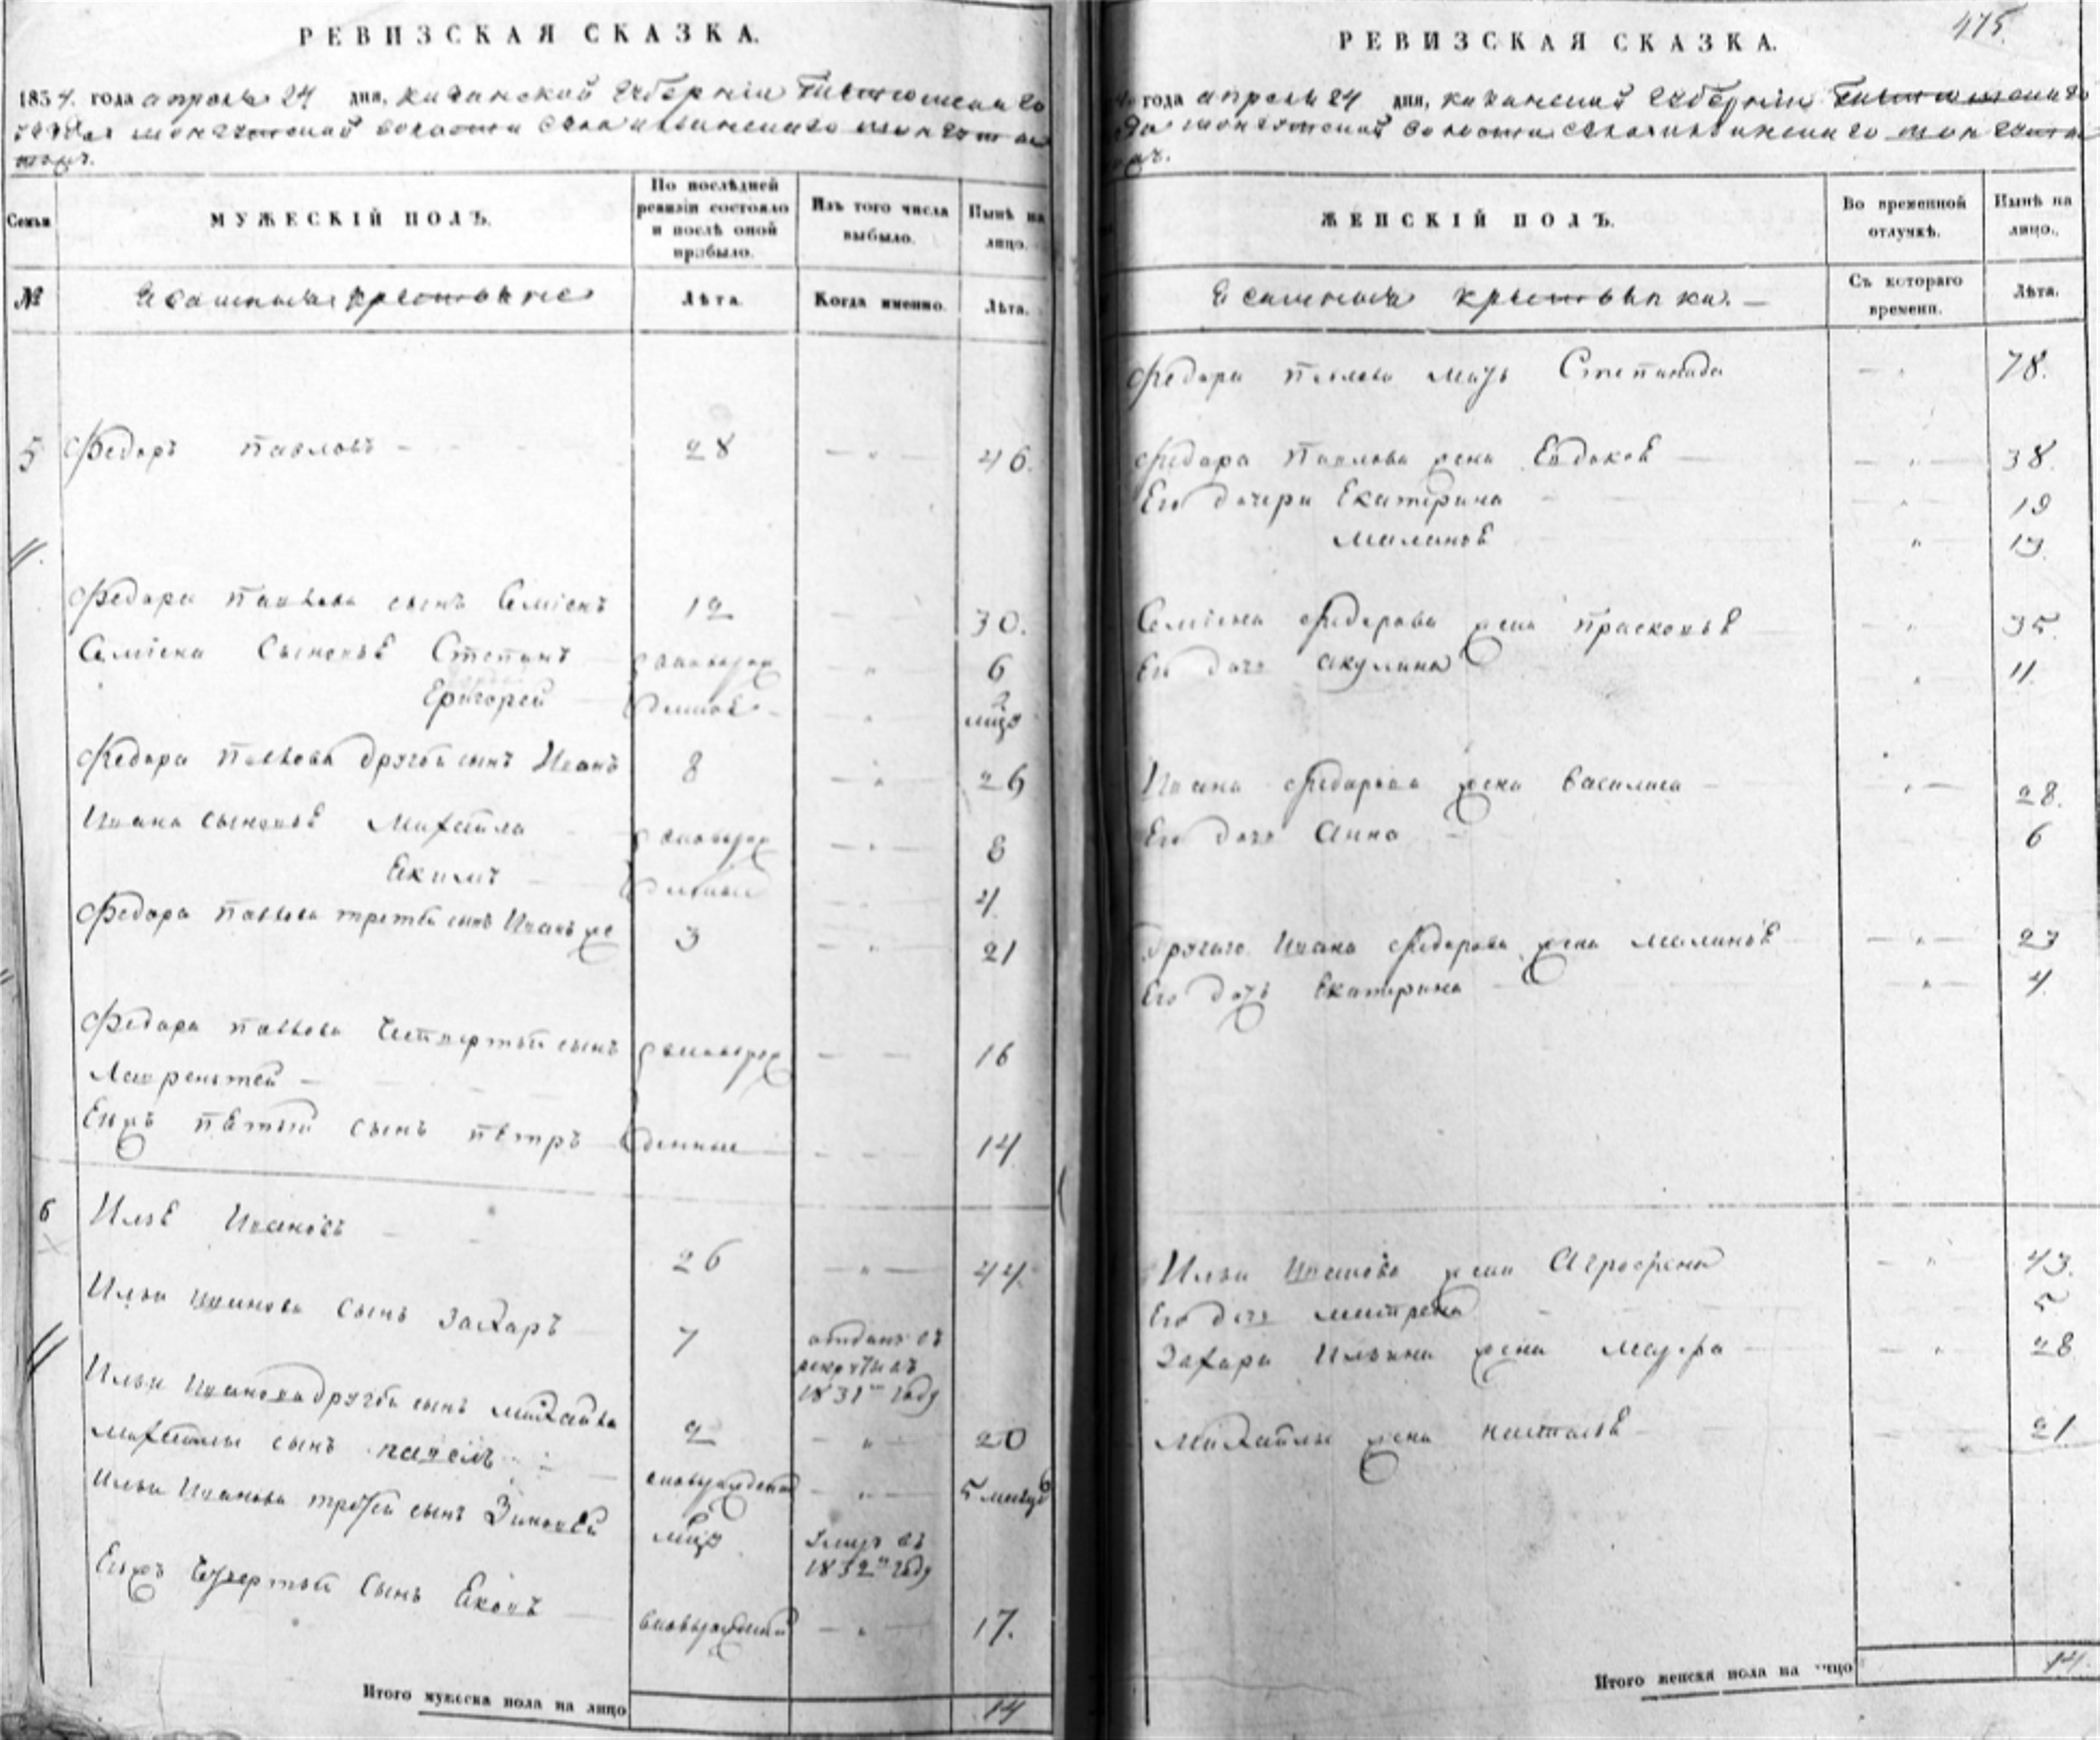 РЕВИЗСКАЯ СКАЗКА.
1834. года апреля 24 дня, казанской губерніи
волости
МУЖЕСКІЙ ПОЛЪ.
Семьи
По послѣдней ревизіи состояло и послѣ оной прибыло.
Изъ того числа выбыло.
Нынѣ на лицо.
№
Лѣта.
Когда именно.
Лѣта.
5 Федоръ Павловъ 28 46.
Федора Павлова сынъ Семіонъ 12 30.
Семіона Сыновья Степанъ 6
Григорей 2
Федора Павлова другой сынъ Иванъ 8 26
Ивана сыновья Михайла 8
Екимъ 4
Федора Павлова третей сынъ Иванъ же 3 21
Федора Павлова Четвертый сынъ 16
Лаврентей
Ево жъ пятый сынъ петръ 14
6 Илья Ивановъ 26 44.
Ильи Иванова Сынъ Захаръ 7 отданъ въ
рекруты въ
1831м году
Ильи Иванова другой сынъ михайла 2 20
михайлы сынъ павелъ вновьрожденой 5
Ильи Иванова третей сынъ Зиновей
умеръ въ
1832м году
Ево жъ Четвертый Сынъ Яковъ вновьрожденой 17.
Итого мужеска пола на лицо 14
475.
РЕВИЗСКАЯ СКАЗКА.
года апреля 24 дня, казанской губерніи
волости
ЖЕНСКІЙ ПОЛЪ.
Во временной отлучкѣ.
Нынѣ на лицо.
Съ котораго времени.
Лѣта.
Федора Павлова мать Степанида 78.
Федора Павлова жена Евдокея 38.
Его дочери Екатерина 19
Маланья 13
Семіона Федорова жена Прасковья 35.
Его дочь Акулина 11.
Ивана Федорова жена Василиса 28.
Его дочь Анна 6
Другаго Ивана Федорова жена Маланья 23
Его дочь Екатерина 4.
Ильи Иванова жена Аграфена 43.
Его дочь матрена 5
Захара Ильина жена Мавра 28
Михайлы жена наталья 21
Итого женска пола на лицо 14.